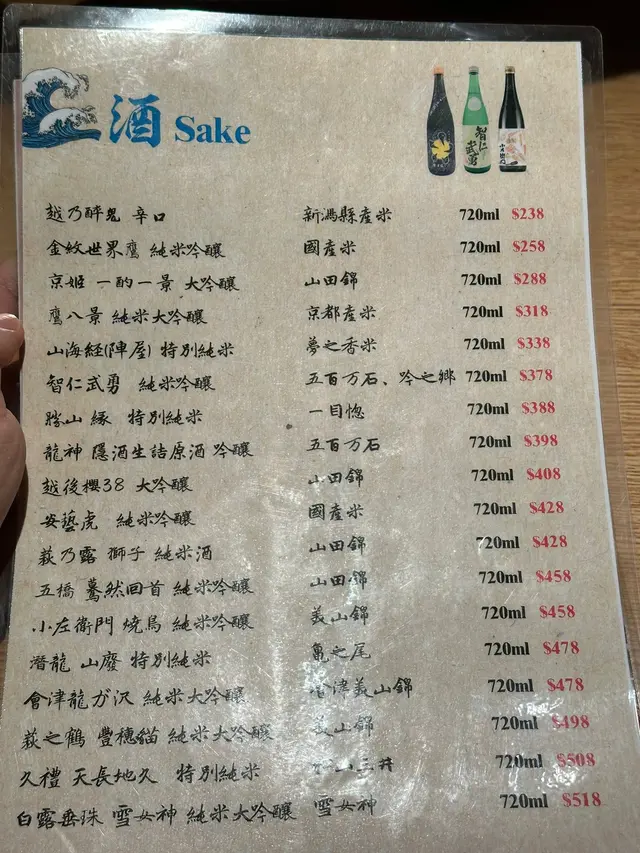 酒 Sake
智仁武勇
越乃醉鬼 辛口 新潟縣產米 720ml $238
金紋世界鷹 純米吟釀 國產米 720ml $258
京姬 一酌一景 大吟釀 山田錦 720ml $288
鷹八景 純米大吟釀 京都產米 720ml $318
山海経(陣屋) 特別純米 夢之香米 720ml $338
智仁武勇 純米吟釀 五百万石、吟之鄉 720ml $378
勝山 縁 特別純米 一目惚 720ml $388
龍神 隱酒生詰原酒 吟釀 五百万石 720ml $398
越後櫻38 大吟釀 山田錦 720ml $408
安藝虎 純米吟釀 國產米 720ml $428
萩乃露 獅子 純米酒 山田錦 720ml $428
五橋 驀然回首 純米吟釀 山田錦 720ml $458
小左衛門 燒鳥 純米吟釀 美山錦 720ml $458
潛龍 山廢 特別純米 亀之尾 720ml $478
會津龍が沢 純米大吟釀 會津美山錦 720ml $478
萩之鶴 豐穗貓 純米大吟釀 美山錦 720ml $498
久禮 天長地久 特別純米 山三井 720ml $508
白露垂珠 雪女神 純米大吟釀 雪女神 720ml $518